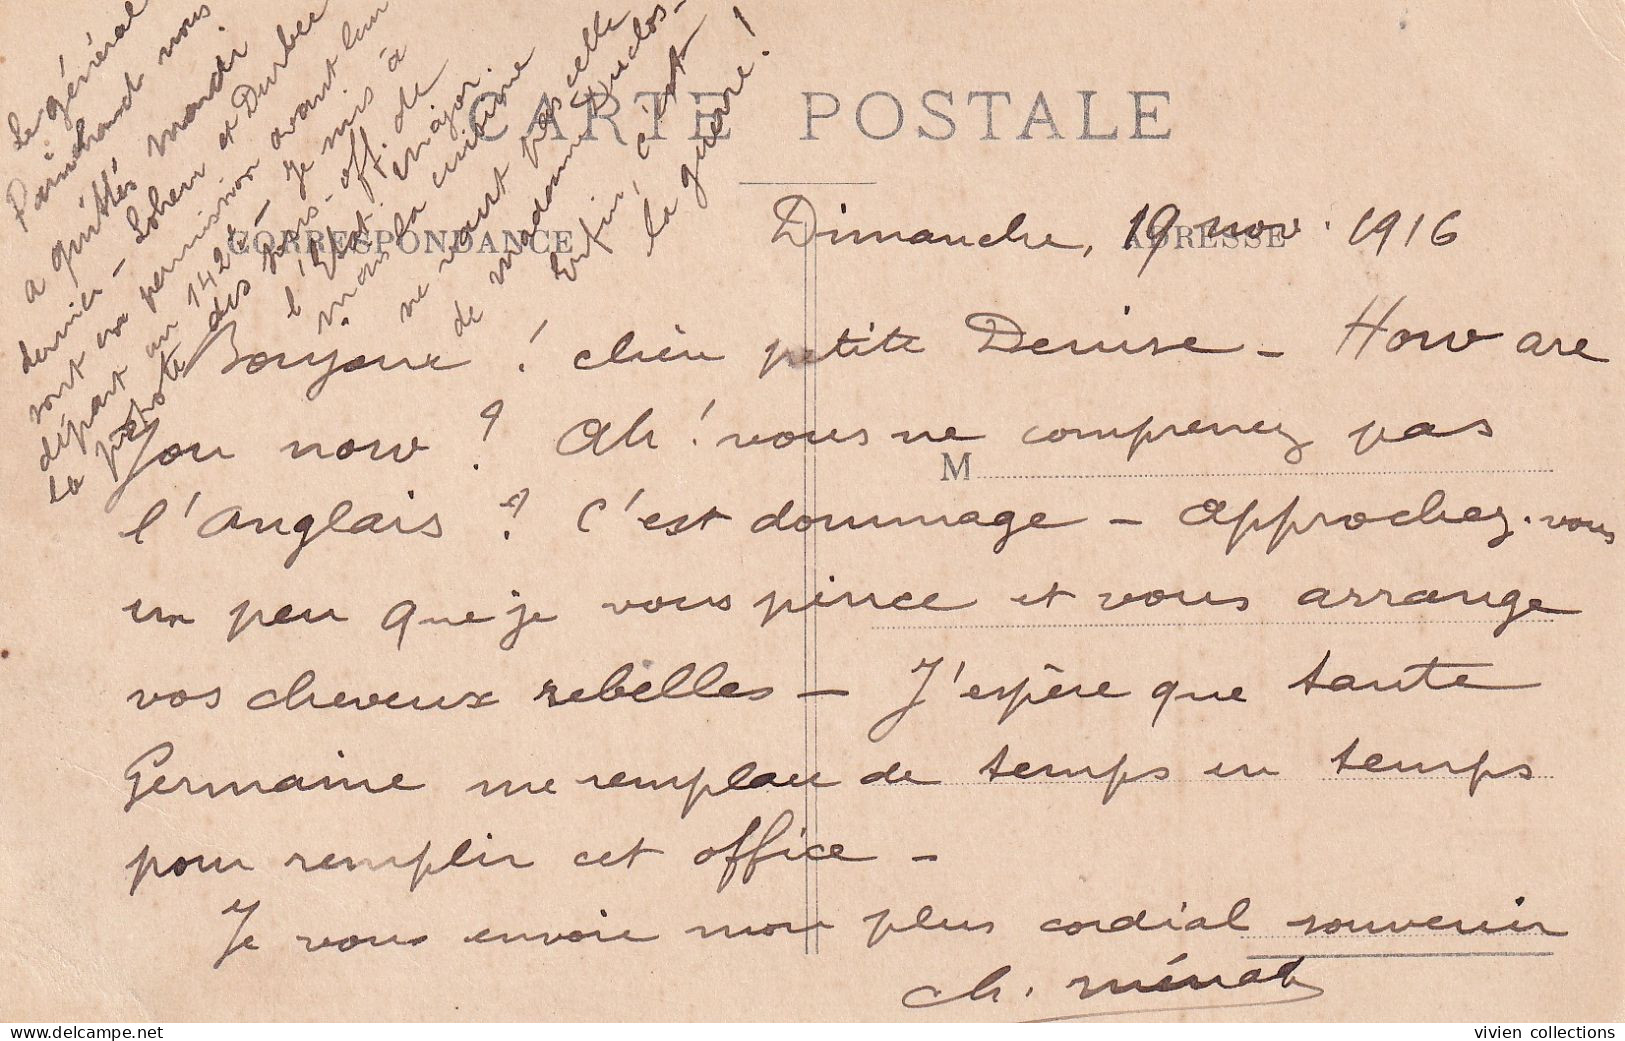 CARTE POSTALE
CORRESPONDANCE
ADRESSE
M
Dimanche, 19 nov. 1916
Bonjour ! chère petite Denise - How are
you now ? Ah ! vous ne comprenez pas
l'anglais ? C'est dommage - approchez-vous
un peu que je vous pince et vous arrange
vos cheveux rebelles - J'espère que tante
Germaine me remplace de temps en temps
pour remplir cet office -
Je vous envoie mon plus cordial souvenir
ch.
Le général
nous
a quittés mardi
dernier - et
sont en permission avant leur
départ au 142e - Je suis à
la des sous-off. de
l'Etat major.
mais la cuisine
ne vaut pas celle
de madame Duclos -
Enfin, c'est
la guerre !
vivien collections